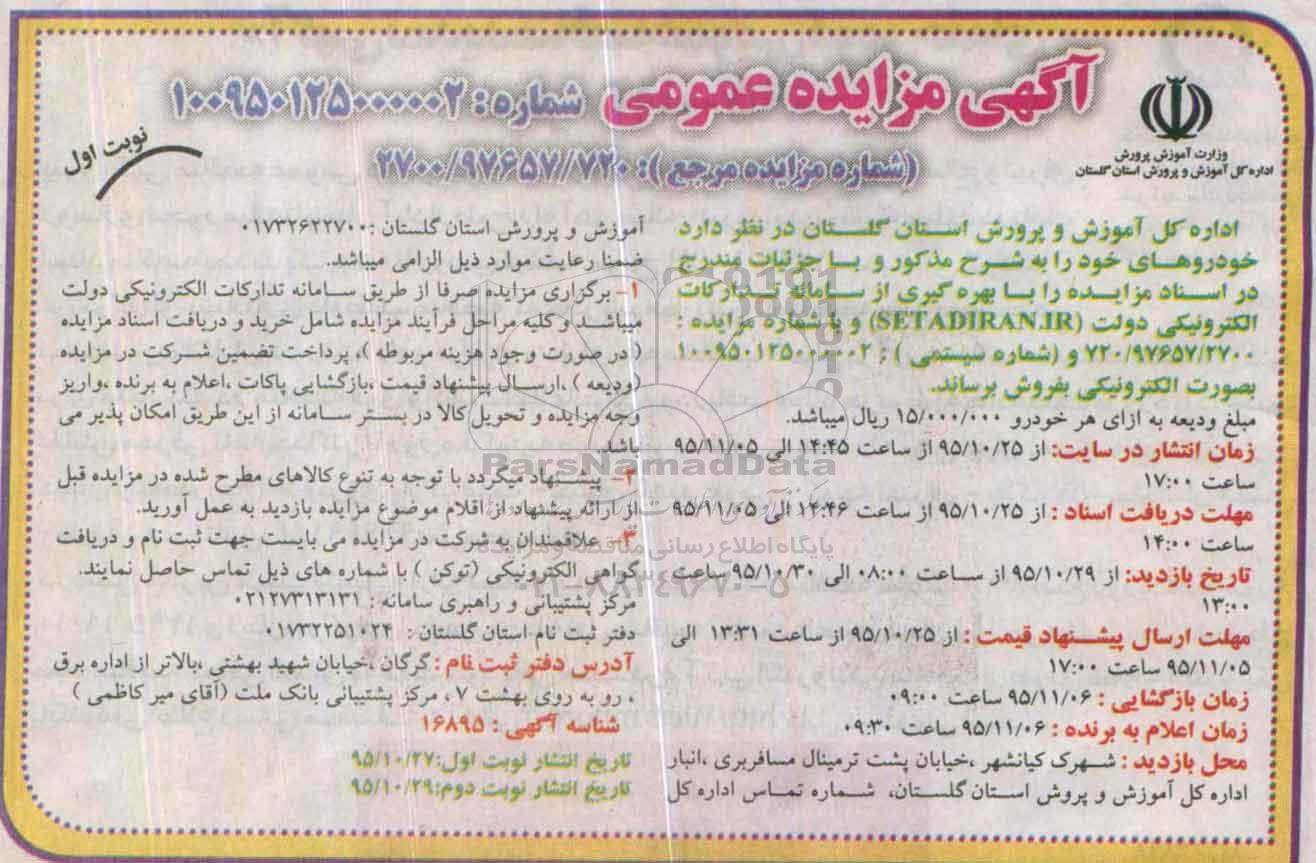 آگهی مزایده عمومی شماره: ۱۰۰۹۵۰۱۲۵۰۰۰۰۰۲
(شماره مزایده مرجع): ۲۷۰۰/۹۷۶۵۷/۷۲۰
نوبت اول
وزارت آموزش پرورش
اداره کل آموزش و پرورش استان گلستان
اداره کل آموزش و پرورش استان گلستان در نظر دارد
خودروهای خود را به شرح مذکور و با جزئیات مندرج
در اسناد مزایده را با بهره گیری از سامانه تدارکات
الکترونیکی دولت (SETADIRAN.IR) و با شماره مزایده :
۷۲۰/۹۷۶۵۷/۲۷۰۰ و (شماره سیستمی ) : ۱۰۰۹۵۰۱۲۵۰۰۰۰۰۲
بصورت الکترونیکی بفروش برساند.
مبلغ ودیعه به ازای هر خودرو ۱۵/۰۰۰/۰۰۰ ریال میباشد.
زمان انتشار در سایت: از ۹۵/۱۰/۲۵ از ساعت ۱۴:۴۵ الی ۹۵/۱۱/۰۵
ساعت ۱۷:۰۰
مهلت دریافت اسناد : از ۹۵/۱۰/۲۵ از ساعت ۱۴:۴۶ الی ۹۵/۱۱/۰۵
ساعت ۱۴:۰۰
تاریخ بازدید: از ۹۵/۱۰/۲۹ از ساعت ۰۸:۰۰ الی ۹۵/۱۰/۳۰ ساعت
۱۳:۰۰
مهلت ارسال پیشنهاد قیمت : از ۹۵/۱۰/۲۵ از ساعت ۱۳:۳۱ الی
۹۵/۱۱/۰۵ ساعت ۱۷:۰۰
زمان بازگشایی : ۹۵/۱۱/۰۶ ساعت ۰۹:۰۰
زمان اعلام به برنده : ۹۵/۱۱/۰۶ ساعت ۰۹:۳۰
محل بازدید : شهرک کیانشهر ،خیابان پشت ترمینال مسافربری ،انبار
اداره کل آموزش و پروش استان گلستان، شماره تماس اداره کل
آموزش و پرورش استان گلستان :۰۱۷۳۲۶۲۲۷۰۰
ضمنا رعایت موارد ذیل الزامی میباشد.
۱- برگزاری مزایده صرفا از طریق سامانه تدارکات الکترونیکی دولت
میباشد و کلیه مراحل فرآیند مزایده شامل خرید و دریافت اسناد مزایده
( در صورت وجود هزینه مربوطه )، پرداخت تضمین شرکت در مزایده
(ودیعه ) ،ارسال پیشنهاد قیمت ،بازگشایی پاکات ،اعلام به برنده ،واریز
وجه مزایده و تحویل کالا در بستر سامانه از این طریق امکان پذیر می
باشد.
۲- پیشنهاد میگردد با توجه به تنوع کالاهای مطرح شده در مزایده قبل
از ارائه پیشنهاد از اقلام موضوع مزایده بازدید به عمل آورید.
۳- علاقمندان به شرکت در مزایده می بایست جهت ثبت نام و دریافت
گواهی الکترونیکی (توکن ) با شماره های ذیل تماس حاصل نمایند.
مرکز پشتیبانی و راهبری سامانه : ۰۲۱۲۷۳۱۳۱۳۱
دفتر ثبت نام استان گلستان : ۰۱۷۳۲۲۵۱۰۲۴
آدرس دفتر ثبت نام : گرگان ،خیابان شهید بهشتی ،بالاتر از اداره برق
، رو به روی بهشت ۷ ، مرکز پشتیبانی بانک ملت (آقای میر کاظمی )
شناسه آگهی : ۱۶۸۹۵
تاریخ انتشار نوبت اول:۹۵/۱۰/۲۷
تاریخ انتشار نوبت دوم:۹۵/۱۰/۲۹
ParsNamadData
پایگاه اطلاع رسانی مناقصه و مزایده